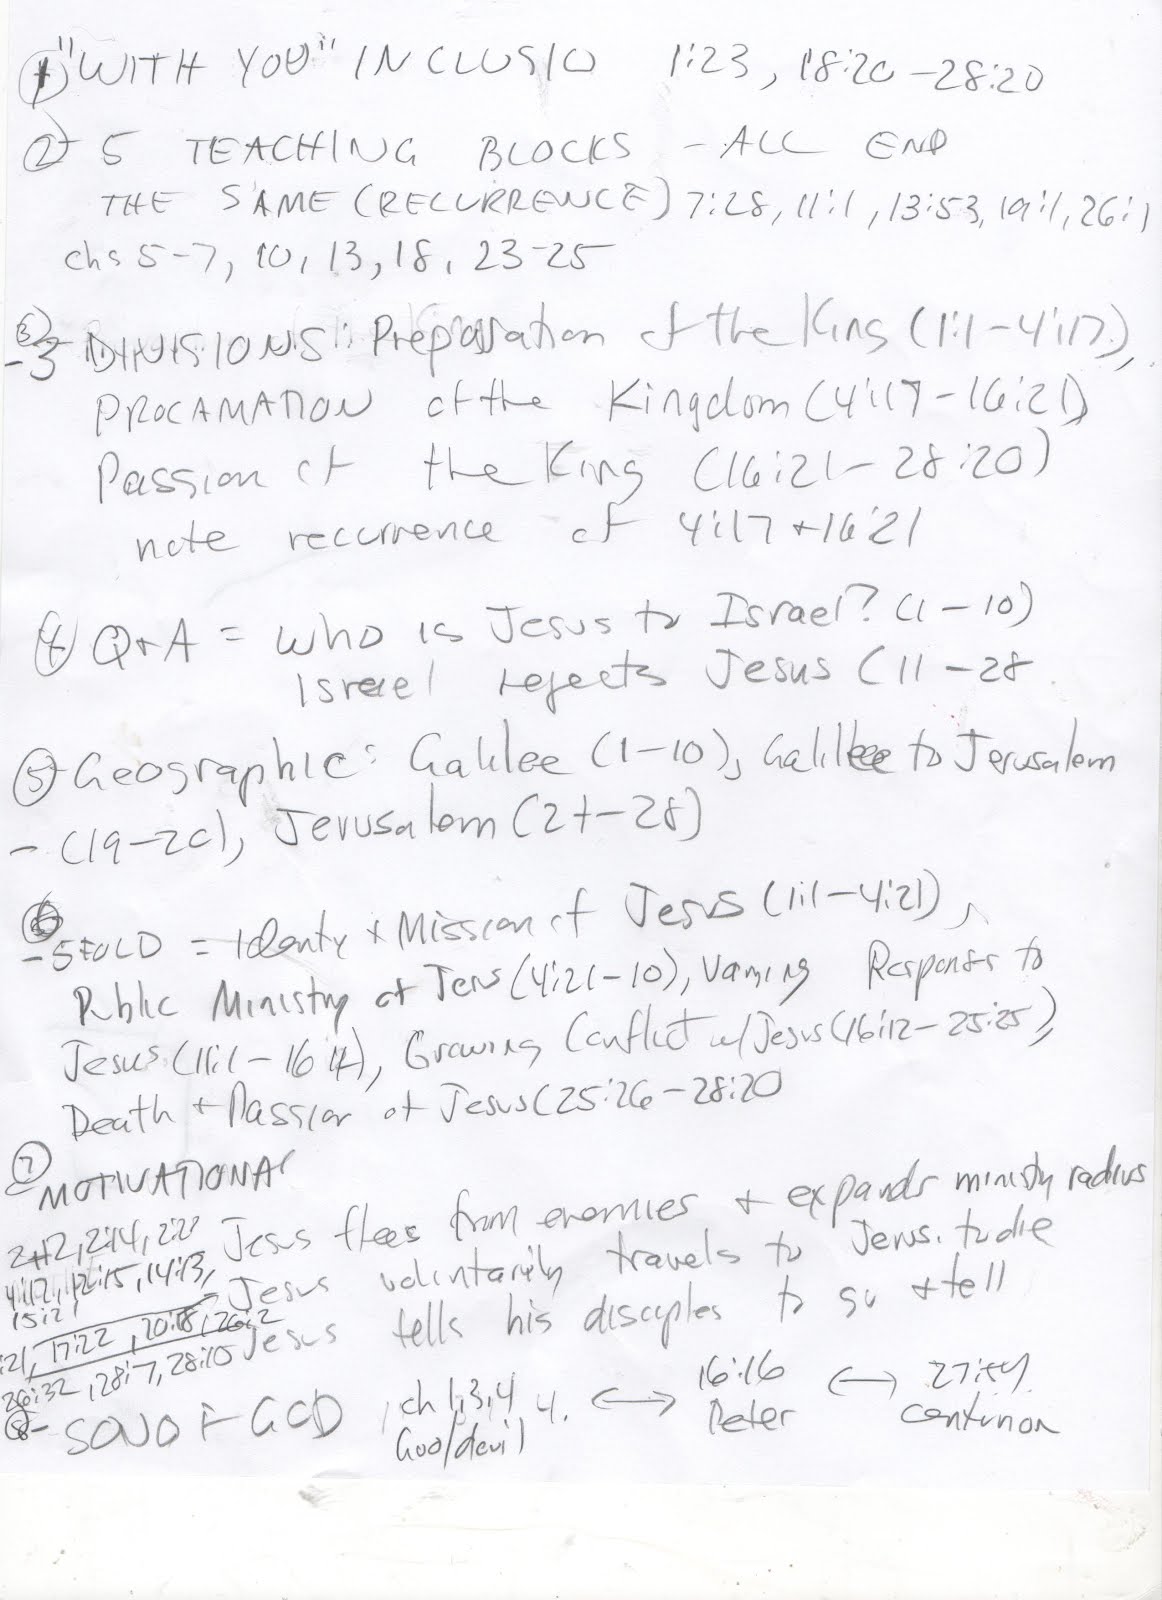 ① "WITH YOU" INCLUSIO 1:23, 18:20-28:20
② 5 TEACHING BLOCKS - ALL END
THE SAME (RECURRENCE) 7:28, 11:1, 13:53, 19:1, 26:1
chs 5-7, 10, 13, 18, 23-25
③ -3 DIVISIONS: Preparation of the King (1:1-4:17),
PROCAMATION of the Kingdom (4:17-16:21)
Passion of the King (16:21-28:20)
note recurrence of 4:17 + 16:21
④ Q+A = Who is Jesus to Israel? (1-10)
Israel rejects Jesus (11-28
⑤ Geographic: Galilee (1-10), Galilee to Jerusalem
- (19-20), Jerusalem (21-28)
⑥ -5 FOLD = Identy + Mission of Jesus (1:1-4:21),
Public Ministry of Jesus (4:21-10), Varying Responses to
Jesus (11:1-16:4), Growing Conflict w/Jesus (16:12-25:25),
Death + Passion of Jesus (25:26-28:20
⑦ MOTIVATIONAL
2:12, 2:14, 2:22 Jesus flees from enemies + expands ministry radius
4:12, 12:15, 14:13, Jesus voluntarily travels to Jerus. to die
15:21
:21, 17:22, 20:18, 26:2 Jesus tells his disciples to go + tell
26:32, 28:7, 28:10
⑧- SON OF GOD, ch 1, 3, 4 4. ↔ 16:16 ↔ 27:54
God/devil Peter centurion